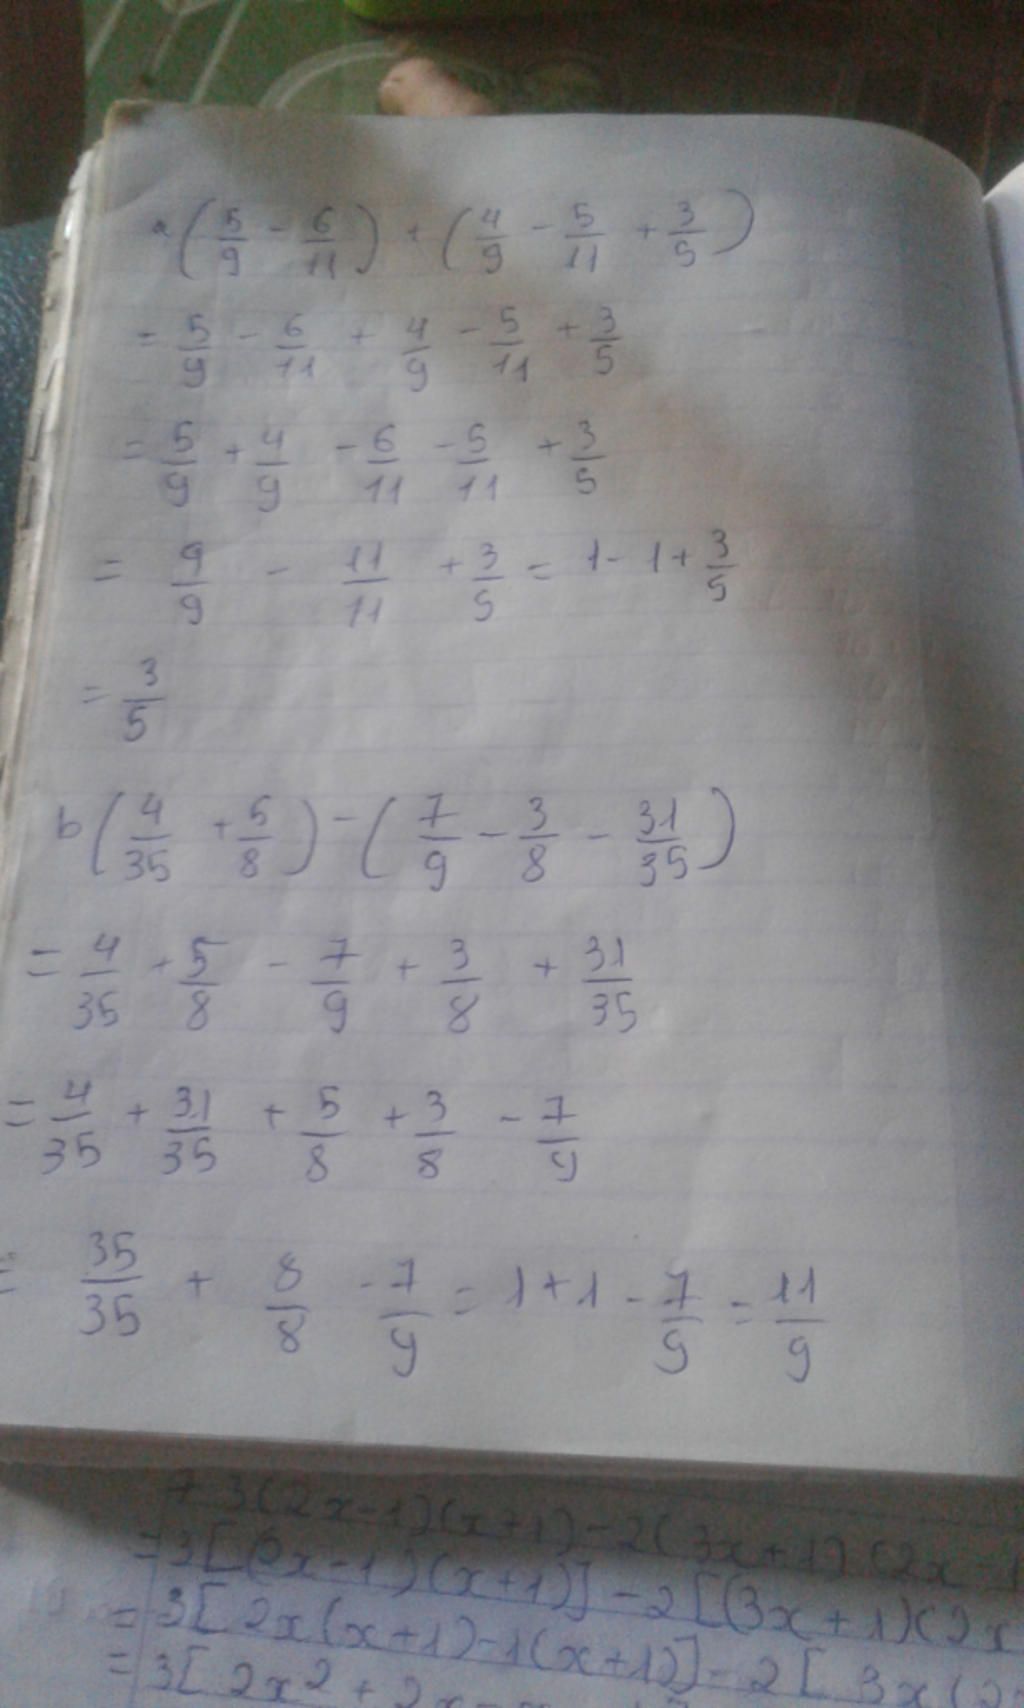 a (5/9 - 6/11) + (4/9 - 5/11 + 3/5)
= 5/9 - 6/11 + 4/9 - 5/11 + 3/5
= 5/9 + 4/9 - 6/11 - 5/11 + 3/5
= 9/9 - 11/11 + 3/5 = 1 - 1 + 3/5
= 3/5
b (4/35 + 5/8) - (7/9 - 3/8 - 31/35)
= 4/35 + 5/8 - 7/9 + 3/8 + 31/35
= 4/35 + 31/35 + 5/8 + 3/8 - 7/9
= 35/35 + 8/8 - 7/9 = 1 + 1 - 7/9 = 11/9
3(2x-1)(x+1)-2(3x+1)(2x-1
=3[(2x-1)(x+1)]-2[(3x+1)(2x
=3[2x(x+1)-1(x+1)]-2[3x(
=3[2x²+2x